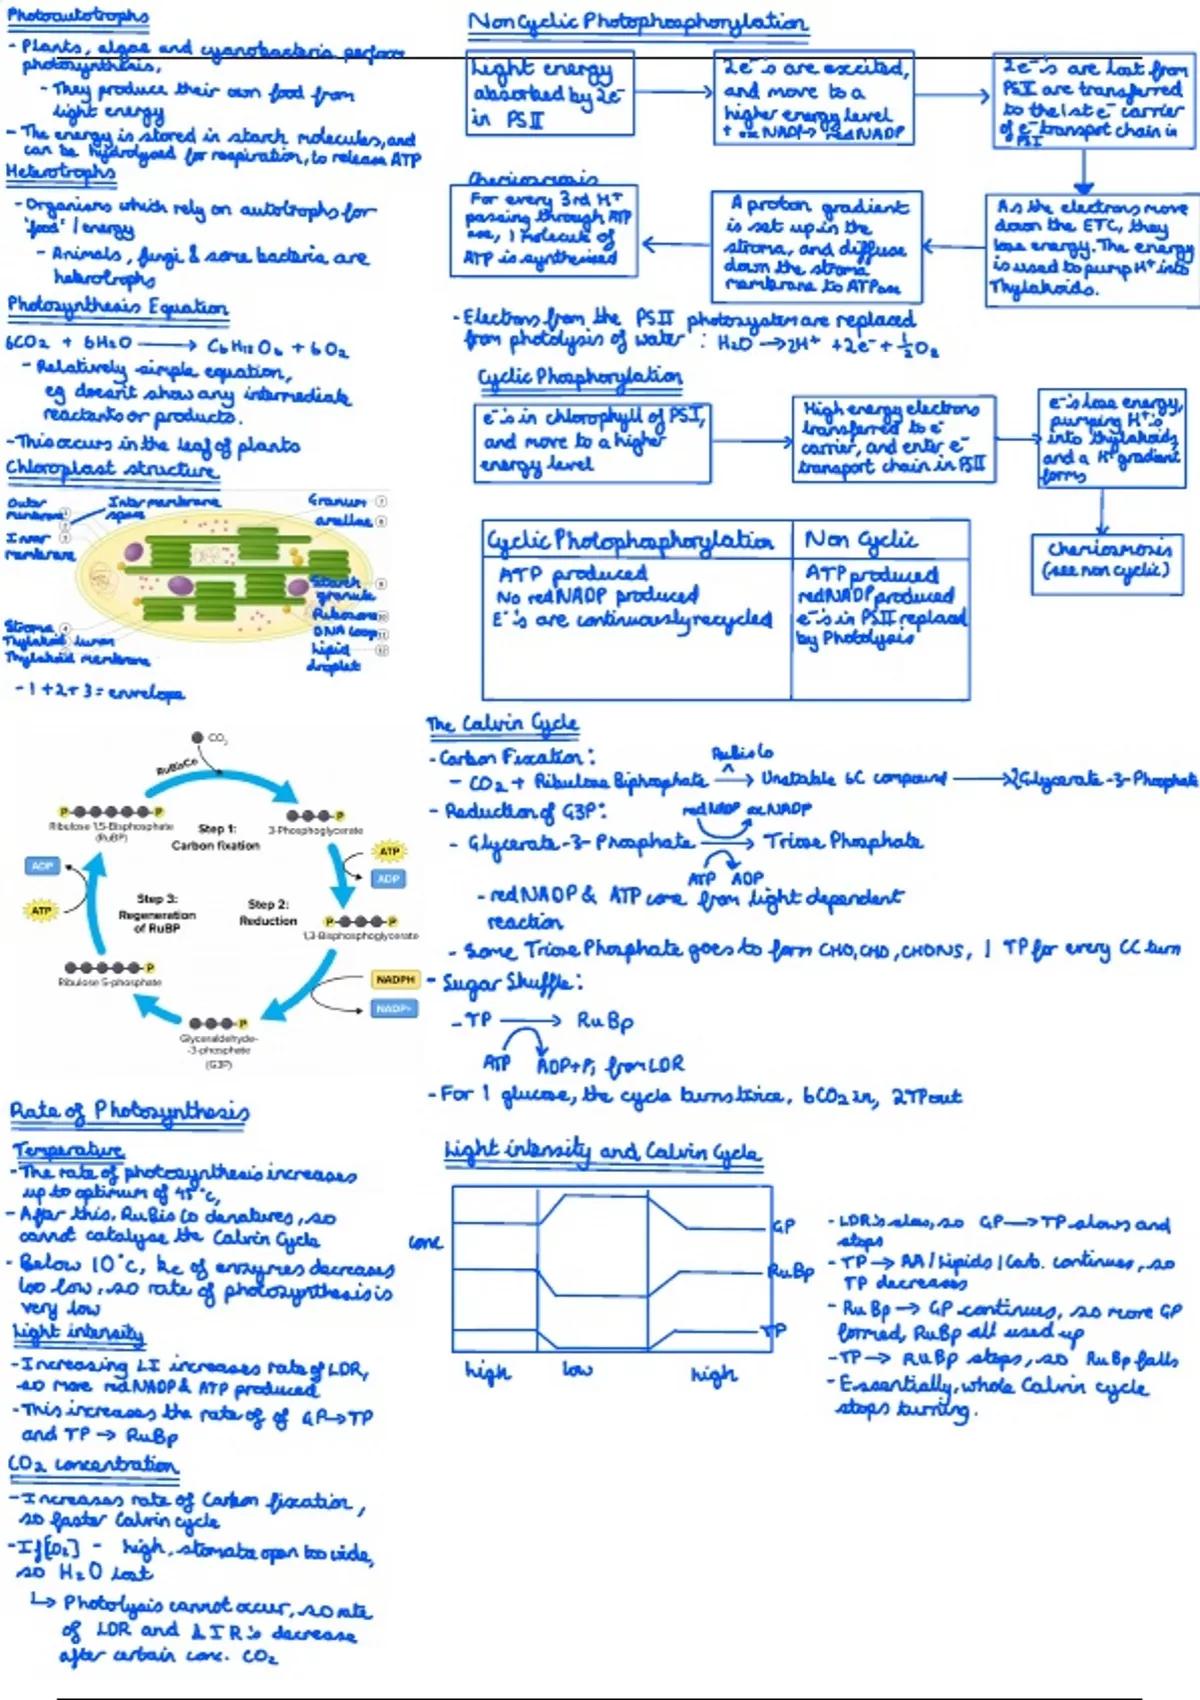 Photoautotrophs
- Plants, algae and cyanobacteria perform
photosynthesis,
- They produce their own food from
light energy
- The energy is stored in starch molecules, and
can be hydrolysed for respiration, to release ATP
Heterotrophs
- Organisms which rely on autotrophs for
'food' / energy
- Animals, fungi & some bacteria are
heterotrophs
Photosynthesis Equation
6CO2 + 6H2O ⟶ C6H12O6 + 6O2
- Relatively simple equation,
eg doesn't show any intermediate
reactants or products.
- This occurs in the leaf of plants
Chloroplast structure
Outer
membrane
Intermembrane
space
Inner
membrane
Granum
Lamellae
Starch
granule
Ribosome
DNA loop
Lipid
droplet
Stroma
Thylakoid lumen
Thylakoid membrane
- 1+2+3 = envelope
Non Cyclic Photophosphorylation
Light energy
absorbed by 2e-
in PSII
2e-'s are excited,
and move to a
higher energy level
+ oxNADP → redNADP
2e-'s are lost from
PSII are transferred
to the 1st e- carrier
of e- transport chain in
PSI
As the electrons move
down the ETC, they
lose energy. The energy
is used to pump H+ into
Thylakoids.
A proton gradient
is set up in the
stroma, and diffuse
down the stroma
membrane to ATPase
Chemiosmosis
For every 3rd H+
passing through ATP
ase, 1 molecule of
ATP is synthesised
- Electrons from the PSII photosystem are replaced
from photolysis of water : H2O → 2H+ + 2e- + ½O2
Cyclic Phosphorylation
e-'s in chlorophyll of PSI,
and move to a higher
energy level
High energy electrons
transferred to e-
carrier, and enter e-
transport chain in PSII
e-'s lose energy,
pumping H+'s
into thylakoids,
and a H+ gradient
forms
Chemiosmosis
(see non cyclic)
Cyclic Photophosphorylation
ATP produced
No redNADP produced
E-'s are continuously recycled
Non Cyclic
ATP produced
redNADP produced
e-'s in PSII replaced
by Photolysis
CO2
RuBisCo
Ribulose 1,5-Bisphosphate
(RuBP)
Step 1:
Carbon fixation
3-Phosphoglycerate
ATP
ADP
Step 2:
Reduction
1,3-Bisphosphoglycerate
NADPH
NADP+
Glyceraldehyde-
-3-phosphate
(G3P)
Ribulose 5-phosphate
Step 3:
Regeneration
of RuBP
ADP
ATP
The Calvin Cycle
- Carbon Fixation:
RubisCo
- CO2 + Ribulose Biphosphate ⟶ Unstable 6C compound ⟶ 2 Glycerate-3-Phosphate
- Reduction of G3P:
redNADP oxNADP
- Glycerate-3-Phosphate ⟶ Triose Phosphate
ATP ADP
- redNADP & ATP come from light dependent
reaction
- Some Triose Phosphate goes to form CHO, CHO, CHONS, 1 TP for every CC turn
- Sugar Shuffle:
- TP ⟶ RuBp
ATP ADP+Pi from LDR
- For 1 glucose, the cycle turns twice, 6CO2 in, 2TP out
Rate of Photosynthesis
Temperature
- The rate of photosynthesis increases
up to optimum of 45°c,
- After this, RuBisCo denatures, so
cannot catalyse the Calvin Cycle
- Below 10°c, ke of enzymes decreases
too low, so rate of photosynthesis is
very low
Light intensity
- Increasing LI increases rate of LDR,
so more redNADP & ATP produced
- This increases the rate of of GP→TP
and TP → RuBp
CO2 concentration
- Increases rate of Carbon fixation,
so faster Calvin cycle
- If [O2] - high, stomata open too wide,
so H2O lost
↳ Photolysis cannot occur, so rate
of LDR and LIR's decrease
after certain conc. CO2
Light intensity and Calvin Cycle
conc
GP
RuBp
TP
high low high
- LDR's slow, so GP ⟶ TP slows and
stops
- TP → AA / Lipids / Carb. continues, so
TP decreases
- RuBp → GP continues, so more GP
formed, RuBp all used up
- TP → RuBp stops, so RuBp falls
- Essentially, whole Calvin cycle
stops turning.